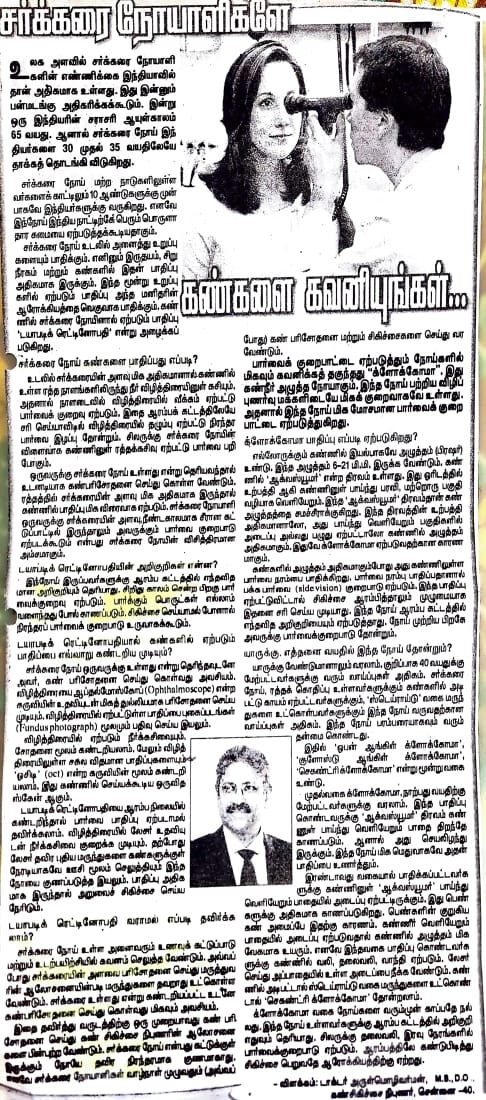 சர்க்கரை நோயாளிகளே
உலக அளவில் சர்க்கரை நோயாளி
களின் எண்ணிக்கை இந்தியாவில்
தான் அதிகமாக உள்ளது. இது இன்னும்
பன்மடங்கு அதிகரிக்கக்கூடும். இன்று
ஒரு இந்தியரின் சராசரி ஆயுள்காலம்
65 வயது. ஆனால் சர்க்கரை நோய் இந்
தியர்களை 30 முதல் 35 வயதிலேயே
தாக்கத் தொடங்கி விடுகிறது.
சர்க்கரை நோய் மற்ற நாடுகளிலுள்ள
வர்களைக் காட்டிலும் 10 ஆண்டுகளுக்கு முன்
பாகவே இந்தியர்களுக்கு வருகிறது. எனவே
இந்நோய் இந்திய நாட்டிற்கே பெரும் பொருளா
தார சுமையை ஏற்படுத்தக்கூடியதாகும்.
சர்க்கரை நோய் உடலில் அனைத்து உறுப்பு
களையும் பாதிக்கும். எனினும் இருதயம், சிறு
நீரகம் மற்றும் கண்களில் இதன் பாதிப்பு
அதிகமாக இருக்கும். இந்த மூன்று உறுப்பு
களில் ஏற்படும் பாதிப்பு அந்த மனிதரின்
ஆரோக்கியத்தை வெகுவாக பாதிக்கும். கண்
ணில் சர்க்கரை நோயினால் ஏற்படும் பாதிப்பு
'டயாபடிக் ரெட்டினோபதி' என்று அழைக்கப்
படுகிறது.
கண்களை கவனியுங்கள்...
சர்க்கரை நோய் கண்களை பாதிப்பது எப்படி?
உடலில் சர்க்கரையின் அளவு மிக அதிகமானால் கண்ணில்
உள்ள ரத்த நாளங்களிலிருந்து நீர் விழித்திரையினுள் கசியும்.
அதனால் நாளடைவில் விழித்திரையில் வீக்கம் ஏற்பட்டு
பார்வைக் குறைவு ஏற்படும். இதை ஆரம்பக் கட்டத்திலேயே
சரி செய்யாவிடில் விழித்திரையில் தழும்பு ஏற்பட்டு நிரந்தர
பார்வை இழப்பு தோன்றும். சிலருக்கு சர்க்கரை நோயின்
விளைவாக கண்ணினுள் ரத்தக்கசிவு ஏற்பட்டு பார்வை பறி
போகும்.
ஒருவருக்கு சர்க்கரை நோய் உள்ளது என்று தெரியவந்தால்
உடனடியாக கண்பரிசோதனை செய்து கொள்ள வேண்டும்.
ரத்தத்தில் சர்க்கரையின் அளவு மிக அதிகமாக இருந்தால்
கண்ணில் பாதிப்பு மிக விரைவாக ஏற்படும். சர்க்கரை நோயினி
ஒருவருக்கு சர்க்கரையின் அளவு நீண்டகாலமாக சீரான கட்
டுப்பாட்டில் இருந்தாலும் அவருக்கும் பார்வை குறைபாடு
ஏற்படக்கூடும் என்பது சர்க்கரை நோயின் விசித்திரமான
அம்சமாகும்.
டயாபடிக் ரெட்டினோபதியின் அறிகுறிகள் என்ன?
இந்நோய் இருப்பவர்களுக்கு ஆரம்ப கட்டத்தில் எந்தவித
மான அறிகுறியும் தெரியாது. சிறிது காலம் சென்ற பிறகு பார்
வைக்குறைவு ஏற்படும். பார்க்கும் பொருட்கள் எல்லாம்
வளைந்தது போல் காணப்படும். சிகிச்சை செய்யாமல் போனால்
நிரந்தரப் பார்வைக் குறைபாடு உருவாகக்கூடும்.
டயாபடிக் ரெட்டினோபதியால் கண்களில் ஏற்படும்
பாதிப்பை எவ்வாறு கண்டறிய முடியும்?
சர்க்கரை நோய் ஒருவருக்கு உள்ளது என்று தெரிந்தவுடனே
அவர், கண் பரிசோதனை செய்து கொள்வது அவசியம்.
விழித்திரையை ஆப்தல்மோஸ்கோப் (Ophthalmoscope) என்ற
கருவியின் உதவியுடன் மிகத் துல்லியமாக பரிசோதனை செய்ய
முடியும். விழித்திரையில் ஏற்பட்டுள்ள பாதிப்பை புகைப்படங்கள்
(Fundus photograph) மூலமும் பதிவு செய்ய இயலும்.
விழித்திரையில் ஏற்படும் நீர்க்கசிவையும்,
சோதனை மூலம் கண்டறியலாம். மேலும் விழித்
திரையிலுள்ள சகல விதமான பாதிப்புகளையும்
'ஓசிடி' (oct) என்ற கருவியின் மூலம் கண்டறி
யலாம். இது கண்ணில் செய்யக்கூடிய ஒருவித
ஸ்கேன் ஆகும்.
டயாபடிக் ரெட்டினோபதியை ஆரம்பநிலையில்
கண்டறிந்தால் பார்வை பாதிப்பு ஏற்படாமல்
தவிர்க்கலாம். விழித்திரையில் லேசர் உதவியு
டன் நீர்க்கசிவை குறைக்க முடியும். தற்போது
லேசர் தவிர புதிய மருந்துகளை கண்களுக்குள்
நேரடியாகவே ஊசி மூலம் செலுத்தியும் இந்த
நோயை குணப்படுத்த இயலும். பாதிப்பு அதிக
மாக இருந்தால் அறுவைச் சிகிச்சை செய்ய
நேரிடும்.
டயாபடிக் ரெட்டினோபதி வராமல் எப்படி தவிர்க்க
லாம்?
சர்க்கரை நோய் உள்ள அனைவரும் உணவுக் கட்டுப்பாடு
மற்றும் உடற்பயிற்சியில் கவனம் செலுத்த வேண்டும். அவ்வப்
போது சர்க்கரையின் அளவை பரிசோதனை செய்து மருத்துவ
ரின் ஆலோசனையின்படி மருந்துகளை தவறாது உட்கொள்ள
வேண்டும். சர்க்கரை உள்ளது என்று கண்டறியப்பட்ட உடனே
கண்பரிசோதனை செய்து கொள்வது மிகவும் அவசியம்.
இதை தவிர்த்து வருடத்திற்கு ஒரு முறையாவது கண் பரி
சோதனை செய்து கண் சிகிச்சை நிபுணரின் ஆலோசனை
களை பின்பற்ற வேண்டும். சர்க்கரை நோய் என்பது கட்டுக்குள்
இருக்கும் நோயே தவிர நிரந்தரமாக குணமாகாது.
எனவே சர்க்கரை நோயாளிகள் வாழ்நாள் முழுவதும் (அவ்வப்
போது) கண் பரிசோதனை மற்றும் சிகிச்சைகளை செய்து வர
வேண்டும்.
பார்வைக் குறைபாட்டை ஏற்படுத்தும் நோய்களில்
மிகவும் கவனிக்கத் தகுந்தது "க்ளோக்கோமா". இது
கண்நீர் அழுத்த நோயாகும். இந்த நோய் பற்றிய விழிப்
புணர்வு மக்களிடையே மிகக் குறைவாகவே உள்ளது.
அதனால் இந்த நோய் மிக மோசமான பார்வைக் குறை
பாட்டை ஏற்படுத்துகிறது.
க்ளோக்கோமா பாதிப்பு எப்படி ஏற்படுகிறது?
எல்லோருக்கும் கண்ணில் இயல்பாகவே அழுத்தம் (பிரஷர்)
உண்டு. இந்த அழுத்தம் 6-21 மி.மீ. இருக்க வேண்டும். கண்
ணில் 'ஆக்வஸ்யூமர்' என்ற திரவம் உள்ளது. இது ஓரிடத்தில்
உற்பத்தி ஆகி கண்ணினுள் பாய்ந்து பரவி, மற்றொரு பகுதி
வழியாக வெளியேறும். இந்த 'ஆக்வஸ்யூமர்' திரவம்தான் கண்
அழுத்தத்தை சமச்சீராக்குகிறது. இந்த திரவத்தின் உற்பத்தி
அதிகமானாலோ, அது பாய்ந்து வெளியேறும் பகுதிகளில்
அடைப்பு அல்லது பழுது ஏற்பட்டாலோ கண்ணில் அழுத்தம்
அதிகமாகும். இதுவே க்ளோக்கோமா ஏற்படுவதற்கான காரண
மாகும்.
கண்களில் அழுத்தம் அதிகமாகும்போது அது கண்ணினுள்ள
பார்வை நரம்பை பாதிக்கிறது. பார்வை நரம்பு பாதிப்பதனால்
பக்க பார்வை (side vision) குறைபாடு ஏற்படும். இந்த பாதிப்பு
ஏற்பட்டுவிட்டால் சிகிச்சை ஆரம்பித்தாலும் முழுமையாக
இதனை சரி செய்ய முடியாது. இந்த நோய் ஆரம்ப கட்டத்தில்
எந்தவித அறிகுறியையும் ஏற்படுத்தாது. நோய் முற்றிய பிறகே
அவருக்கு பார்வைக்குறைபாடு தோன்றும்.
யாருக்கு, எத்தனை வயதில் இந்த நோய் தோன்றும்?
யாருக்கு வேண்டுமானாலும் வரலாம். குறிப்பாக 40 வயதுக்கு
மேற்பட்டவர்களுக்கு வரும் வாய்ப்புகள் அதிகம். சர்க்கரை
நோய், ரத்தக் கொதிப்பு உள்ளவர்களுக்கும் கண்களில் அடி
பட்டு காயம் ஏற்பட்டவர்களுக்கும், 'ஸ்டெய்ராய்டு' வகை மருந்
துகளை உட்கொள்பவர்களுக்கும் இந்த நோய் வருவதற்கான
வாய்ப்புகள் அதிகம். இந்த நோய் பரம்பரையாகவும் வரும்
தன்மை கொண்டது.
இதில் 'ஓபன் ஆங்கிள் க்ளோக்கோமா',
'குளோஸ்டு ஆங்கிள் க்ளோக்கோமா',
'செகண்ட்ரி க்ளோக்கோமா' என்று மூன்று வகை
உண்டு.
முதல்வகை க்ளோக்கோமா, நாற்பது வயதிற்கு
மேற்பட்டவர்களுக்கு வரலாம். இந்த பாதிப்பு
கொண்டவருக்கு 'ஆக்வஸ்யூமர்' திரவம் கண்
ணுள் பாய்ந்து வெளியேறும் பாதை திறந்தே
காணப்படும். ஆனால் அது செயலிழந்து
இருக்கும். இந்த நோய் மிக மெதுவாகவே அதன்
பாதிப்பை உணர்த்தும்.
இரண்டாவது வகையால் பாதிக்கப்பட்டவர்க
ளுக்கு கண்ணினுள் 'ஆக்வஸ்யூமர்' பாய்ந்து
வெளியேறும் பாதையில் அடைப்பு ஏற்பட்டிருக்கும். இது பெண்
களுக்கு அதிகமாக காணப்படுகிறது. பெண்களின் குறுகிய
கண் அமைப்பே இதற்கு காரணம். கண்ணீர் வெளியேறும்
பாதையில் அடைப்பு ஏற்படுவதால் கண்ணில் அழுத்தம் மிக
வேகமாக உயரும். எனவே இந்தவகை பாதிப்பு கொண்டவர்க
ளுக்கு கண்ணில் வலி, தலைவலி, வாந்தி ஏற்படும். லேசர்
செய்து அப்பாதையில் உள்ள அடைப்பை நீக்க வேண்டும். கண்
ணில் அடிபட்டால் ஸ்டெய்ராய்டு வகை மருந்துகளை உட்கொண்
டால் 'செகண்ட்ரி க்ளோக்கோமா' தோன்றலாம்.
க்ளோக்கோமா வகை நோய்களை வரும்முன் காப்பதே நல்
லது. இந்த நோய் உள்ளவர்களுக்கு ஆரம்ப கட்டத்தில் அறிகுறி
எதுவும் தெரியாது. சிலருக்கு தலைவலி, இரவு நேரங்களில்
பார்வைக்குறைபாடு ஏற்படும். ஆரம்பத்திலே கண்டுபிடித்து
சிகிச்சை பெறுவதே ஆரோக்கியத்திற்கு ஏற்றது.
- விளக்கம்: டாக்டர் அருள்மொழிவர்மன், M.B., D.O.,
கண்சிகிச்சை நிபுணர், சென்னை -40.